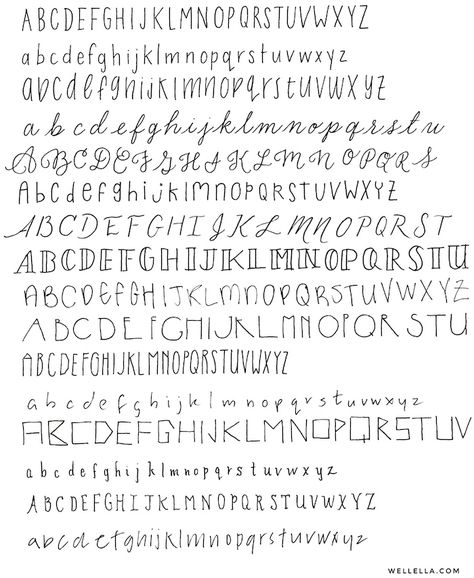 ABCDEFGHIJKLMNOPQRSTUVWXYZ
abcdefghijklmnopqrstuvwxyz
abcdefghijklmnopqrstuvwxyz
abcdefghijklmnopqrstu
ABCDEFGHIJKLMNOPQRS
AbcdefghijklMNOPQRSTUVWXYZ
ABCDEFGHIJKLMNOPQRST
ABCDEFGHIJKLMNOPQRSTU
ABCDEFGHIJKLMNOPQRSTUVWXYZ
ABCDEFGHIJKLMNOPQRSTU
ABCDEFGHIJKLMNOPQRSTUVWXYZ
abcdefghijklmnopqrstuvwxyz
ABCDEFGHIJKLMNOPQRSTUV
abcdefghijklmnopqrstuvwxyz
ABCDEFGHIJKLMNOPQRSTUVWXYZ
abcdefghijklmnopqrstuvwxyz
WELLELLA.COM